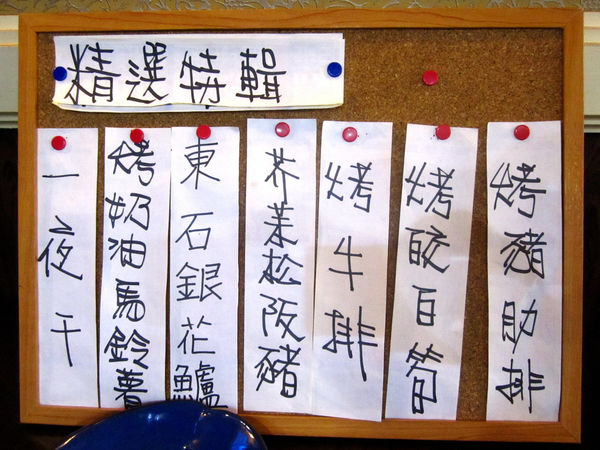 精選特輯
烤豬助排
烤皎白筍
烤牛排
芥茉松阪豬
東石銀花鱸
烤奶油馬鈴薯
一夜干